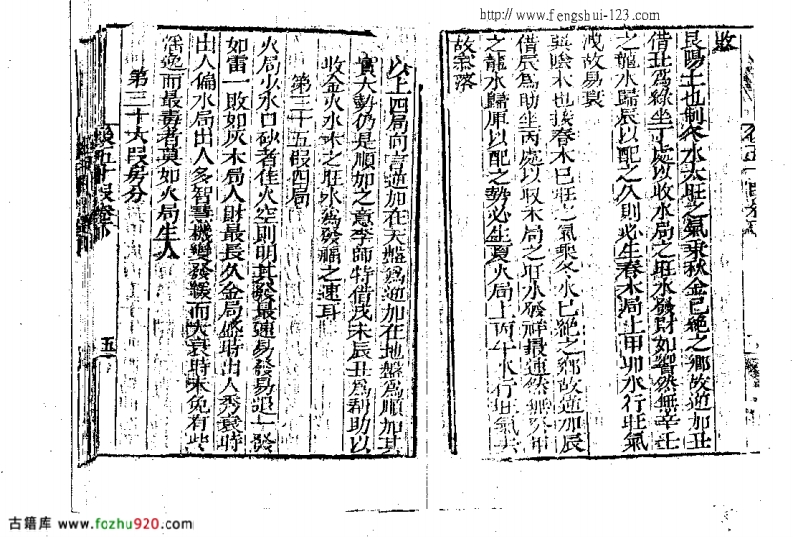 http://www.fengshui-123.com
故
艮陽土也制冬水太旺之氣乘秋金已絕之鄉故逆加丑
借丑為緣坐丁處以收水局之旺水發財如響然無辛壬
之龍水歸辰以配之久則必生春木局上甲卯水行旺氣
洩故易衰
巽陰木也挨春木已旺之氣乘冬水已絕之鄉故逆加辰
借辰為助坐丙處以收木局之旺水發祥最速然無
之龍水歸庫以配之勢必生夏火局上丙午水行旺氣
故衰落
以上四局而言逆加在天盤為逆加在地盤為順加其
實大勢仍是順加之意李師特借戌未辰丑為幫助以
收金火水木之旺水為發福之速耳
第三十五假四局
火局少水口砂者佳火空則明其發最速易發易退一發
如雷一敗如灰木局人財最長久金局條時出人秀衰時
出人偏水局出人多智慧機變發緩而大衰時未免有些
淫逸而最毒者莫如火局生人
第三十六段房分
五
古籍库 www.fozhu920.com